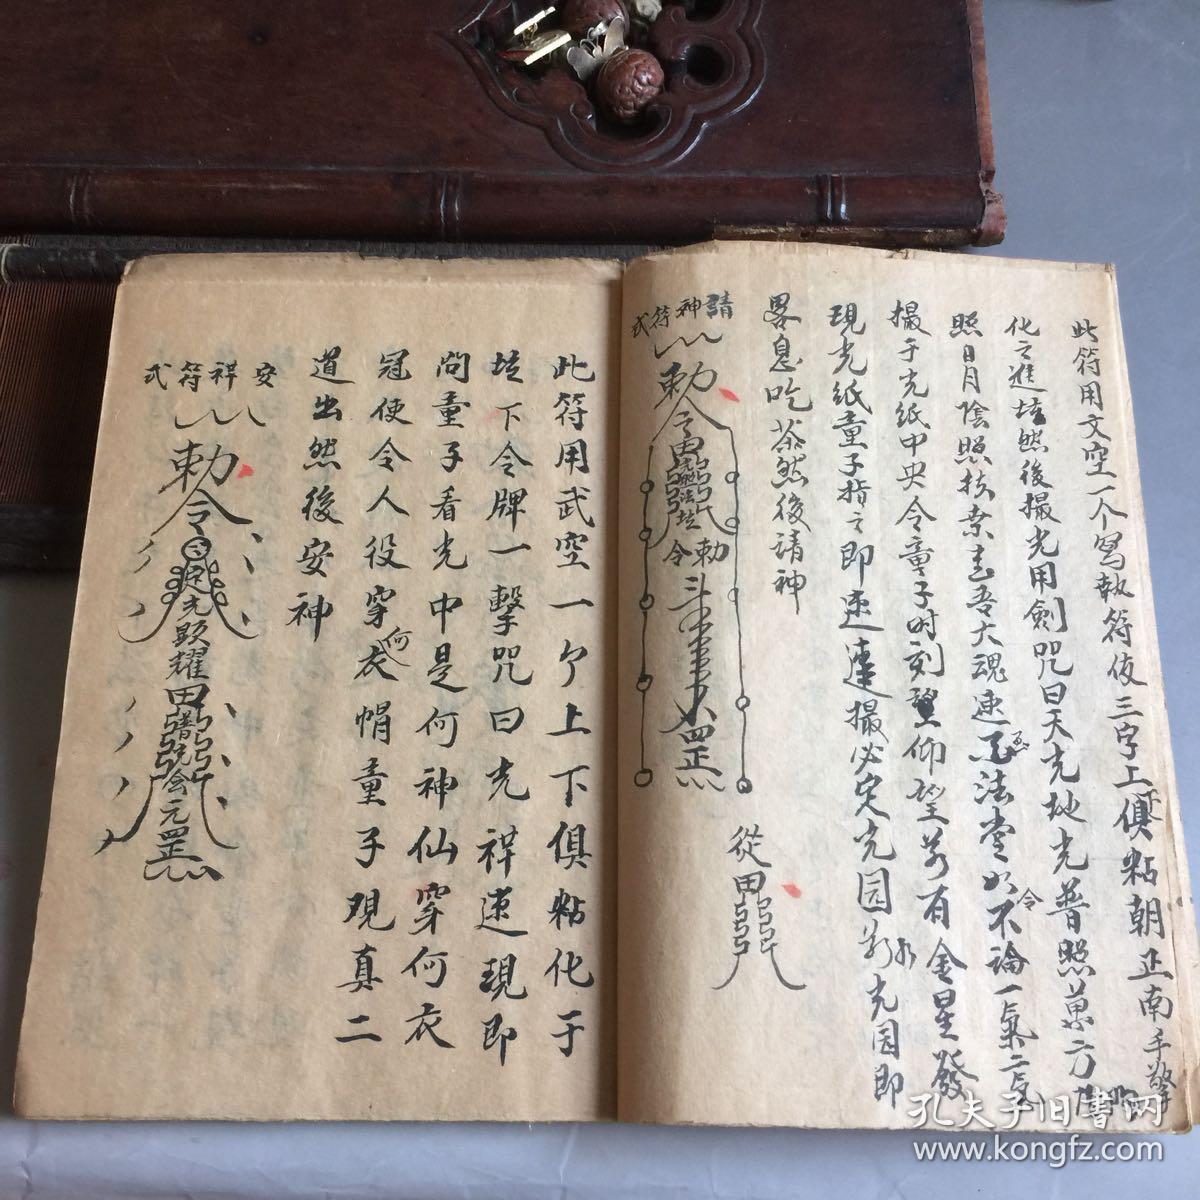 此符用文空一个写執符使三字上下俱粘朝正南手擎
化之進壇然後撮光用劍咒曰天光地光普照萬方
照日月陰照扶桑吾大魂速至法堂令不論一氣二氣
撮于光紙中央令童子時刻望仰望若有金星發
現光紙童子指之即速速撮必定光园若光园即
畧息吃茶然後請神
請神符式
勅令
法壇
勅令
罡
從田
此符用武空一个上下俱粘化于
坛下令牌一擊咒曰光祥速現即
问童子看光中是何神仙穿何衣
冠使令人役穿何衣帽童子观真二
道出然後安神
安祥符式
勅令
光顯耀田
元罡
孔夫子旧书网
www.kongfz.com